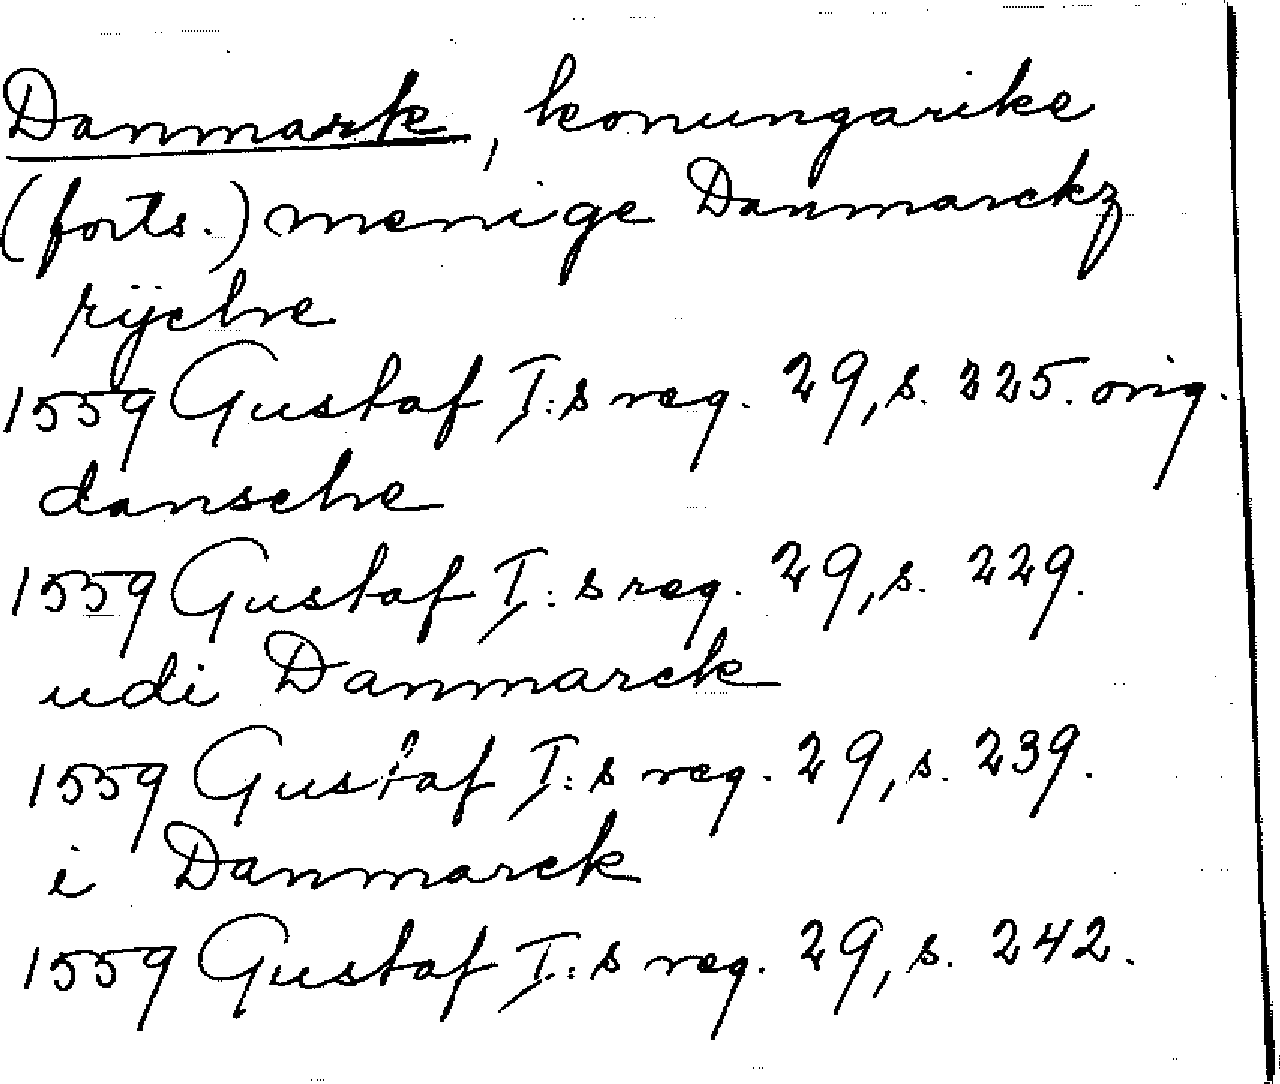 Danmark, konungarike
(forts.) menige Danmarckz
rijche
1559 Gustaf I:s reg. 29, s. 225. orig.
dansche
1559 Gustaf I:s reg. 29, s. 229.
udi Danmarck
1559 Gustaf I:s reg. 29, s. 239.
i Danmarck
1559 Gustaf I:s reg. 29, s. 242.